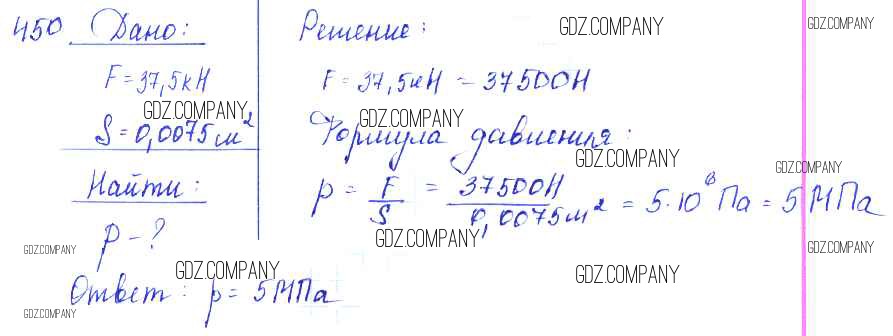 450. Дано:
F = 37,5кН
S = 0,0075м²
Найти:
p - ?
Решение:
F = 37,5кН = 37500Н
Формула давления:
p = F/S = 37500Н/0,0075м² = 5·10⁶ Па = 5МПа
Ответ: p = 5МПа
GDZ.COMPANY
GDZ.COMPANY
GDZ.COMPANY
GDZ.COMPANY
GDZ.COMPANY
GDZ.COMPANY
GDZ.COMPANY
GDZ.COMPANY
GDZ.COMPANY
GDZ.COMPANY
GDZ.COMPANY
GDZ.COMPANY